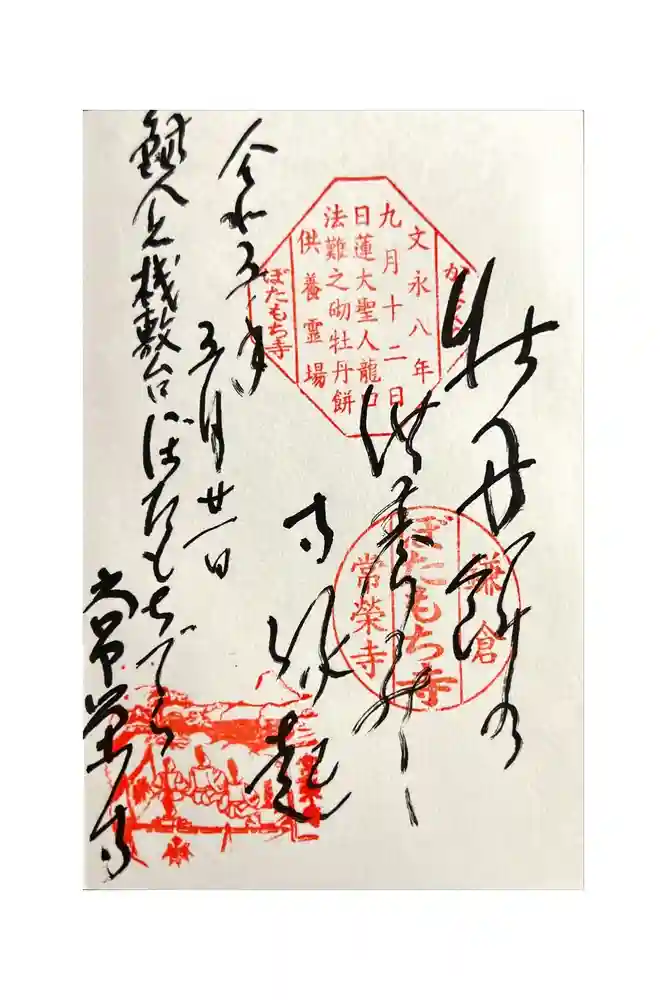 牡丹餅
供養
寺縁起
令和五年
五月廿一日
鎌倉桟敷台ぼたもちでら
常栄寺
文永八年
九月十二日
日蓮大聖人龍口
法難之砌牡丹餅
供養霊場
ぼたもち寺
鎌倉
ぼたもち寺
常榮寺